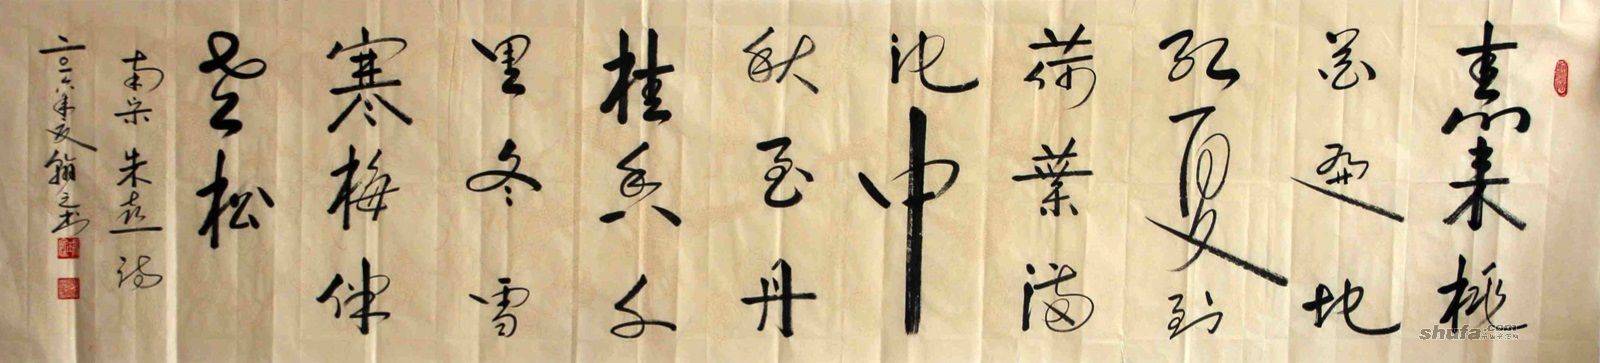 春来桃
花遍地
红夏到
荷葉满
池中
秋至丹
桂香千
里冬雪
寒梅伴
老松
南宋朱熹诗
二〇一六年翰之书
shufa.com